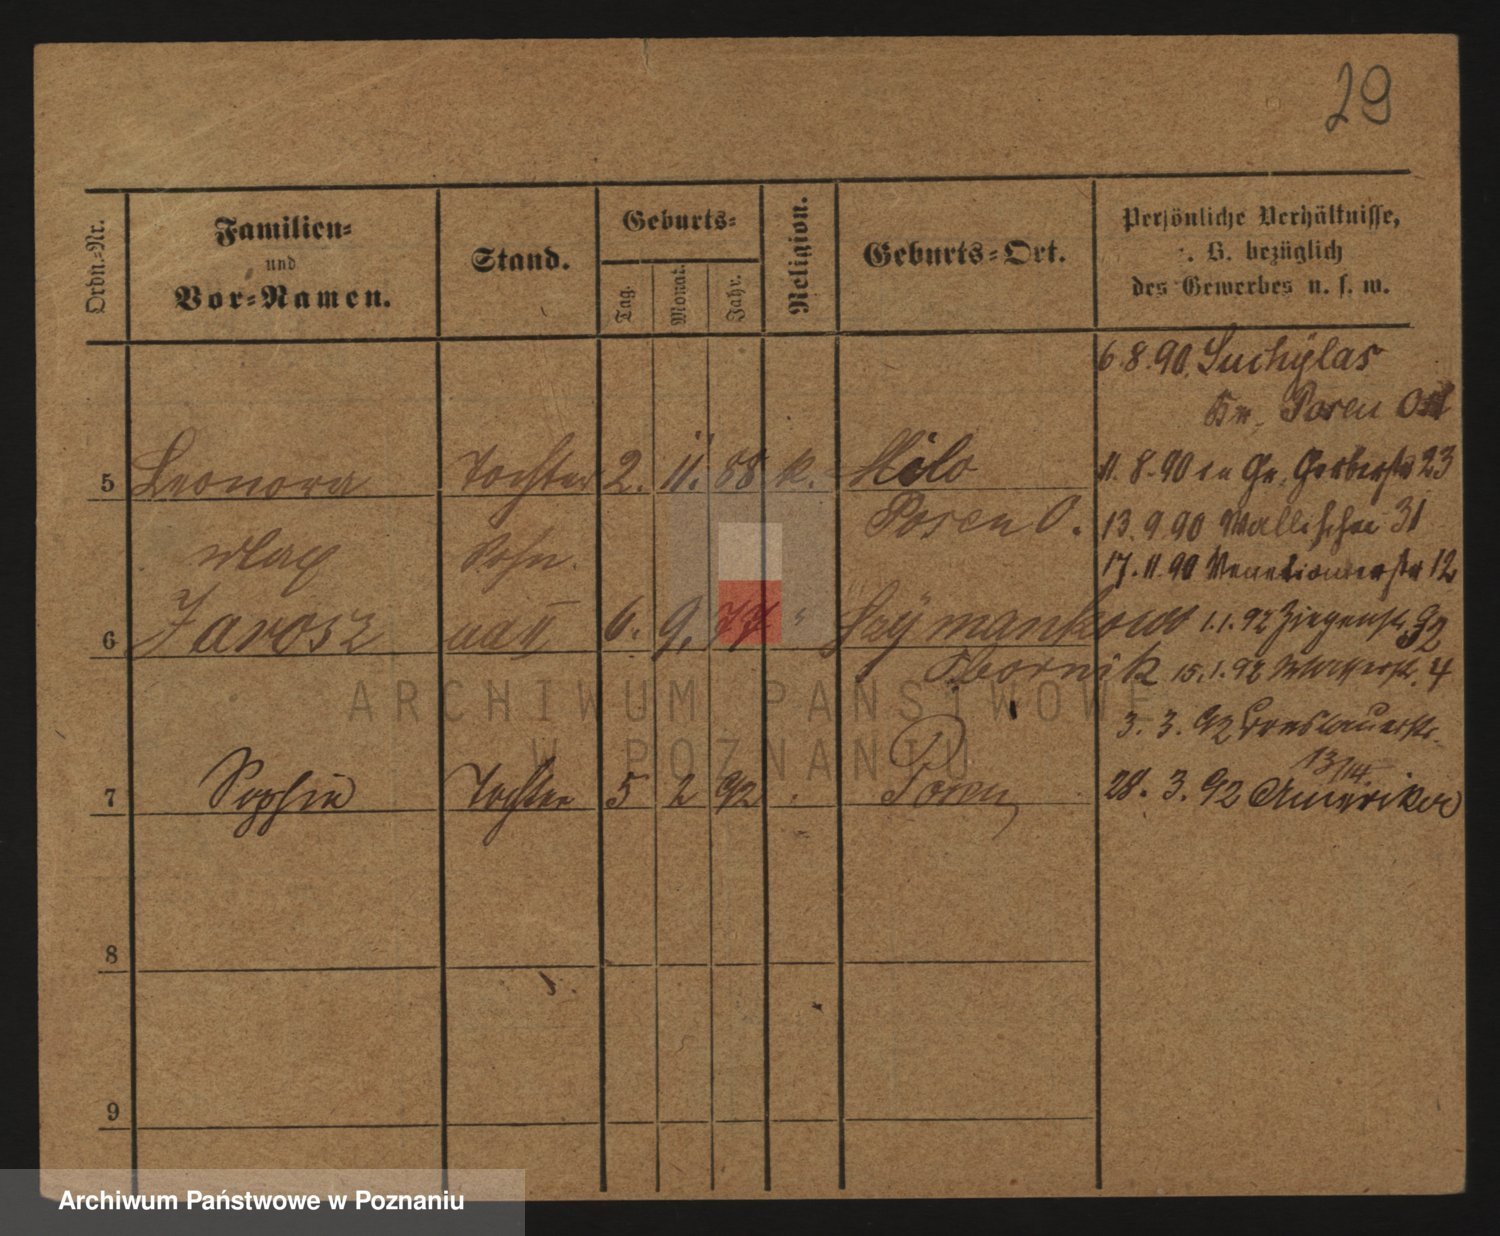 29
Ordn.-Nr.
Familien-
und
Vor-Namen.
Stand.
Geburts-
Tag.
Monat.
Jahr.
Religion.
Geburts-Ort.
Persönliche Verhältnisse,
z. B. bezüglich
des Gewerbes u. s. w.
6.8.90. Suchylas
Kr. Posen Ost
5 Leonora Tochter 2. 11. 88 k. Milo
Posen O.
11.8.90 Gr. Gerberstr 23
13.9.90 Wallischei 31
17.11.90 Venetianerstr 12
Sohn
6 Jarosz II 6. 9. 77 "
1.1.92 Ziegenstr 92
Obornik 15.1.92 4
3.3.92 Breslauerstr.
13/14.
7 Sophie Tochter 5 2 92 Posen
28.3.92 Amerika
8
9
ARCHIWUM PAŃSTWOWE
W POZNANIU
Archiwum Państwowe w Poznaniu